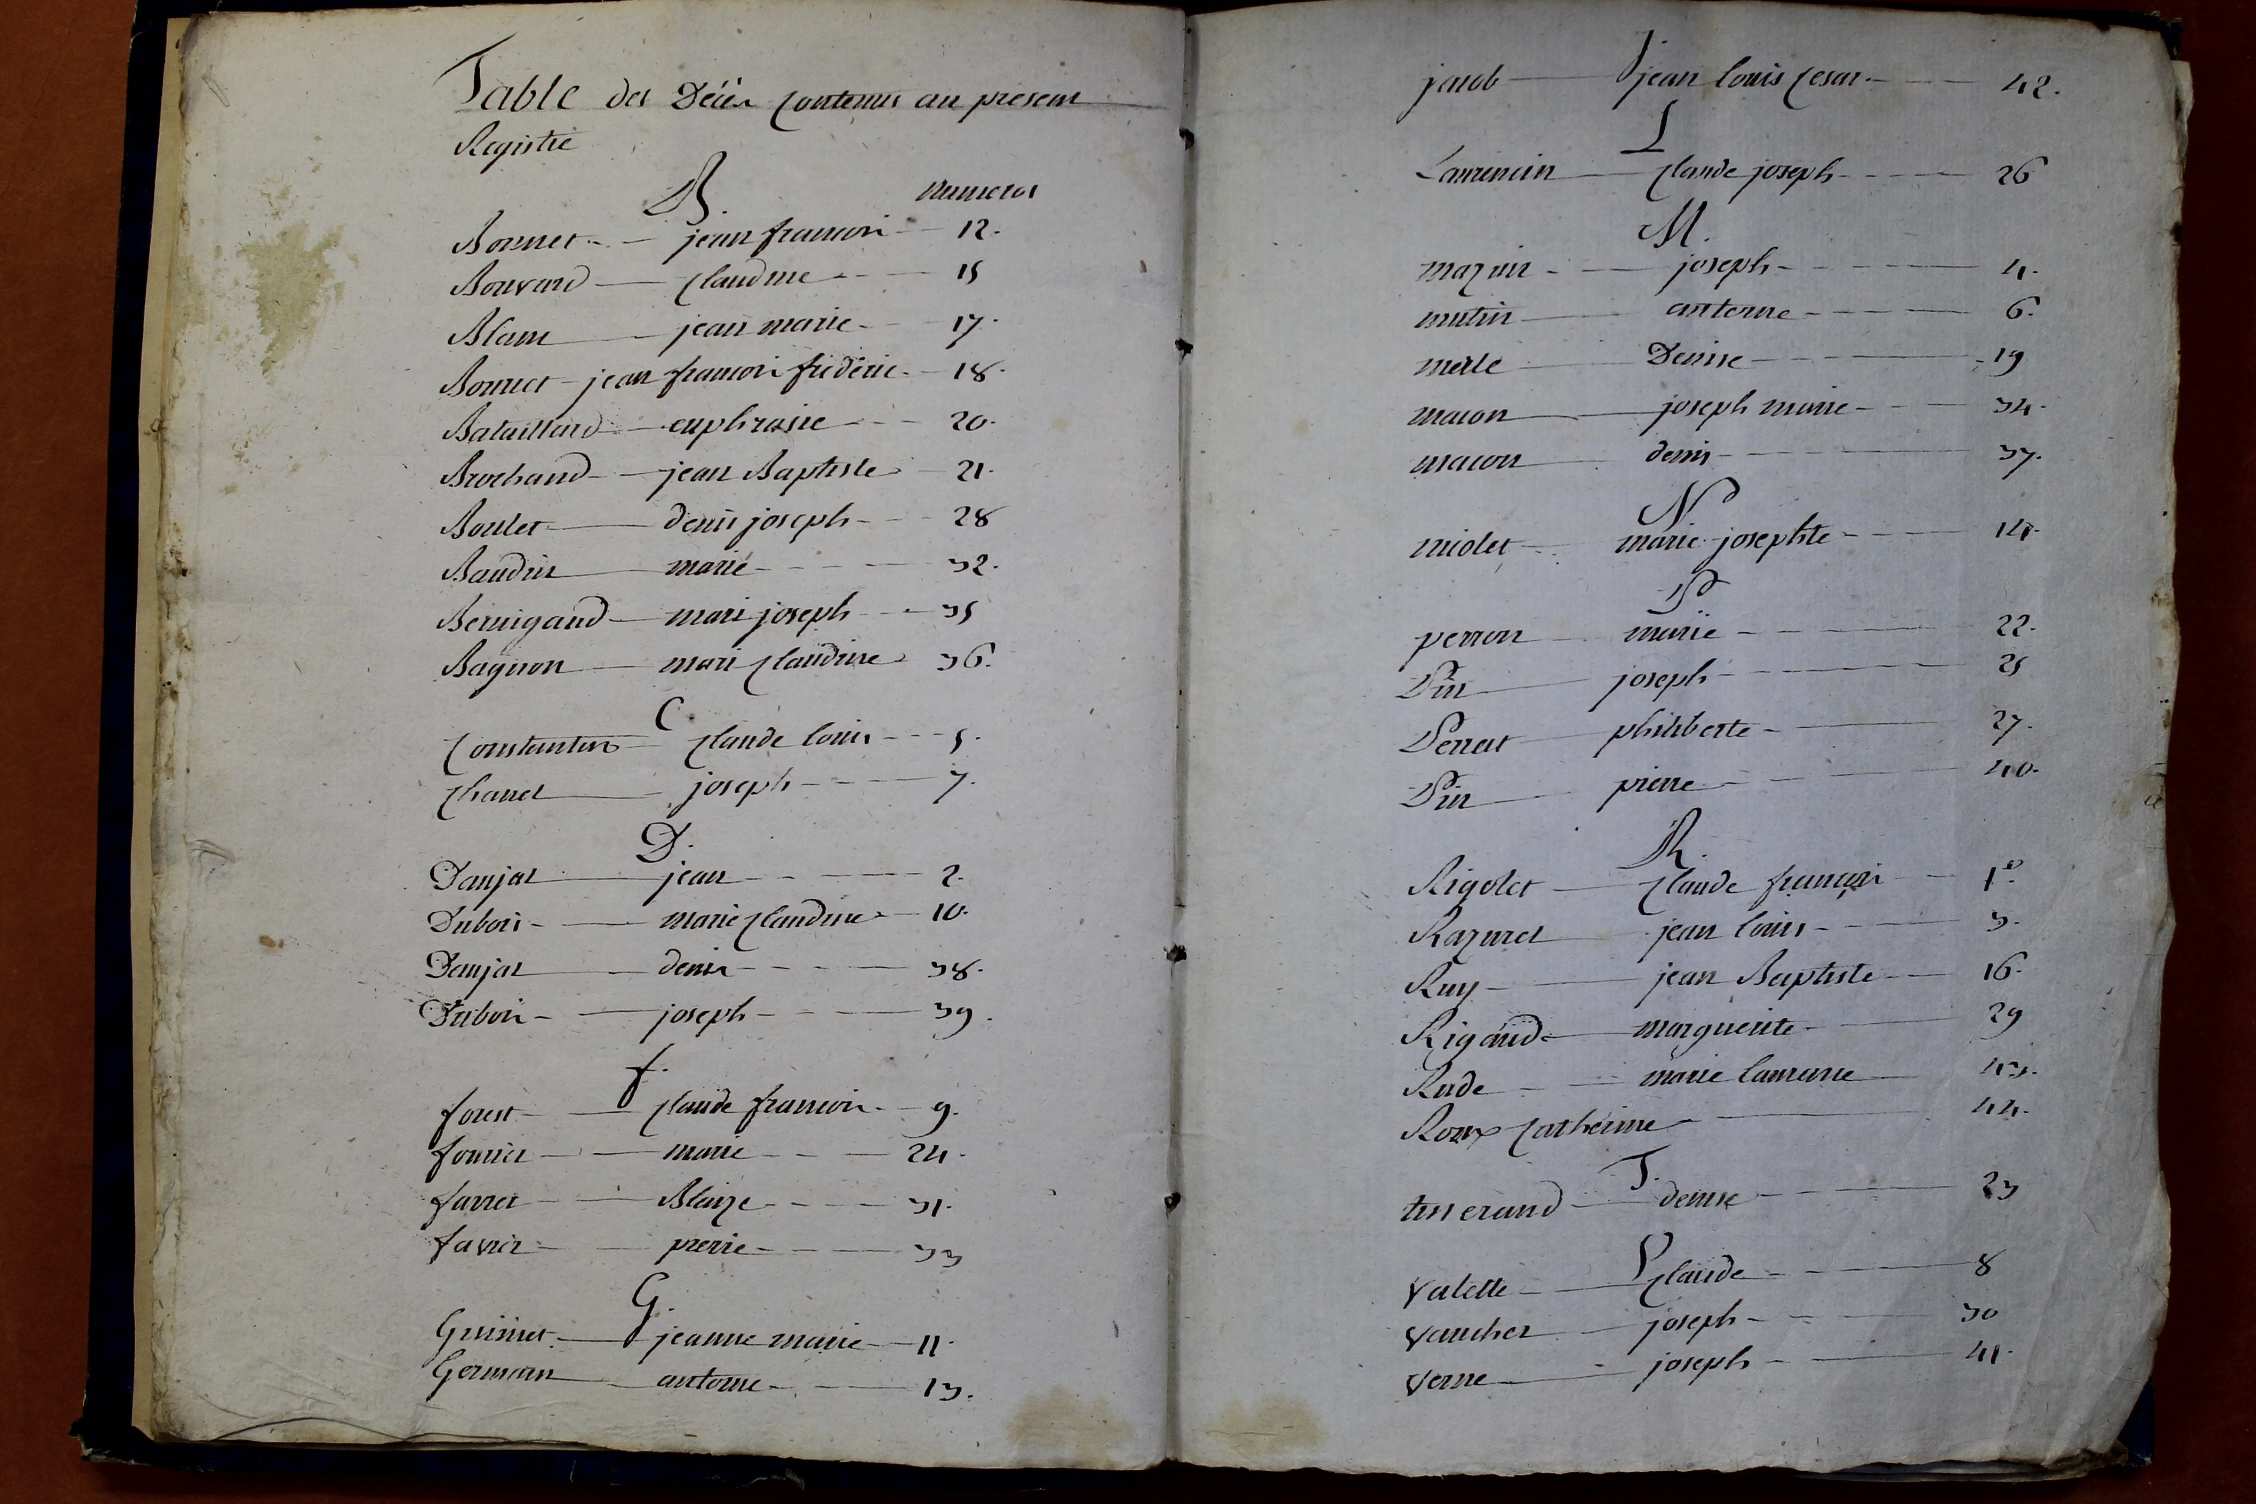 Table des Décès contenus au present
Registre
B. numeros
Bonnet jean francois 12.
Bouvard claudine 15
Blanc jean marie 17.
Bonnet jean francois frédéric 18.
Bataillard euphrasie 20.
Brochand jean Baptiste 21.
Boulet denis joseph 28
Baudin marie 32.
Bernigaud marie joseph 35
Bagnon marie claudine 36.
C.
Constantin claude louis 5.
Charret joseph 7.
D.
Danjat jean 2.
Dubois marie claudine 10.
Danjat denis 38.
Dubois joseph 39.
f.
forest claude francois 9.
fournier marie 24.
farret Blaize 31.
favier pierre 33
G.
Guinet jeanne marie 11.
Germain antoine 13.
J.
jacob jean louis cesar 42.
L
Laurencin claude joseph 26
M.
mazuir joseph 4.
mutin antoine 6.
merle Denise 19
macon joseph marie 34.
macon denis 37.
N
niolet marie josephte 14.
P
perron marie 22.
Pin joseph 25
Perrat philiberte 27.
Pin pierre 40.
R.
Rigolet claude francois 1.er
Razuret jean louis 3.
Ruy jean Baptiste 16.
Rigaud marguerite 29
Rude marie laurence 43.
Roux catherine 44.
T.
tisserand denise 23
V
Valette claude 8
Vaucher joseph 30
Verne joseph 41.